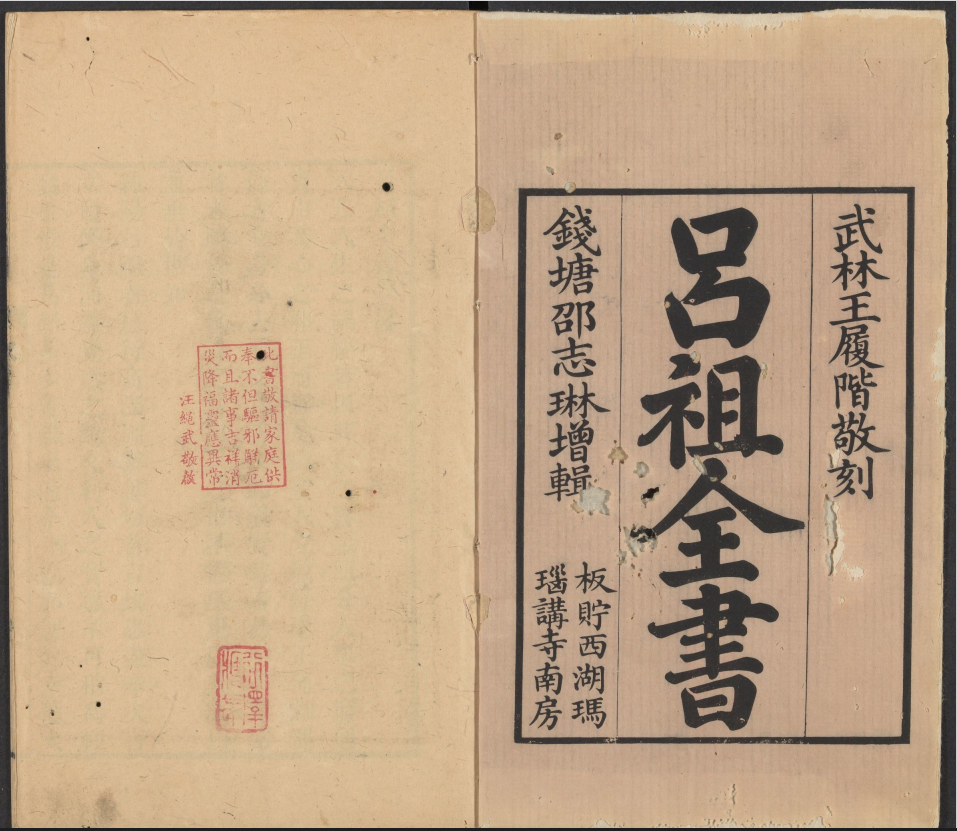 武林王履階敬刻
呂祖全書
錢塘邵志琳增輯
板貯西湖瑪
瑙講寺南房
此書敬請家庭供
奉不但驅邪解厄
而且諸事吉祥消
災降福靈應異常
汪繩武敬啟